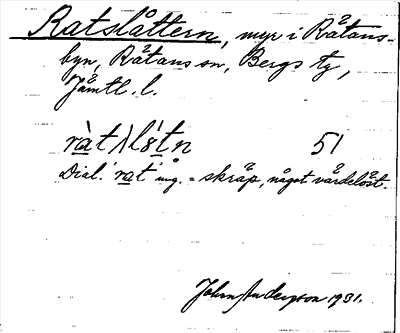 Ratslåttern, myr i Råtans-
byn, Råtans sn, Bergs tg,
Jämtl. l.
51
Dial. rat ung. = skräp, något värdelöst.
John Anderson 1931.